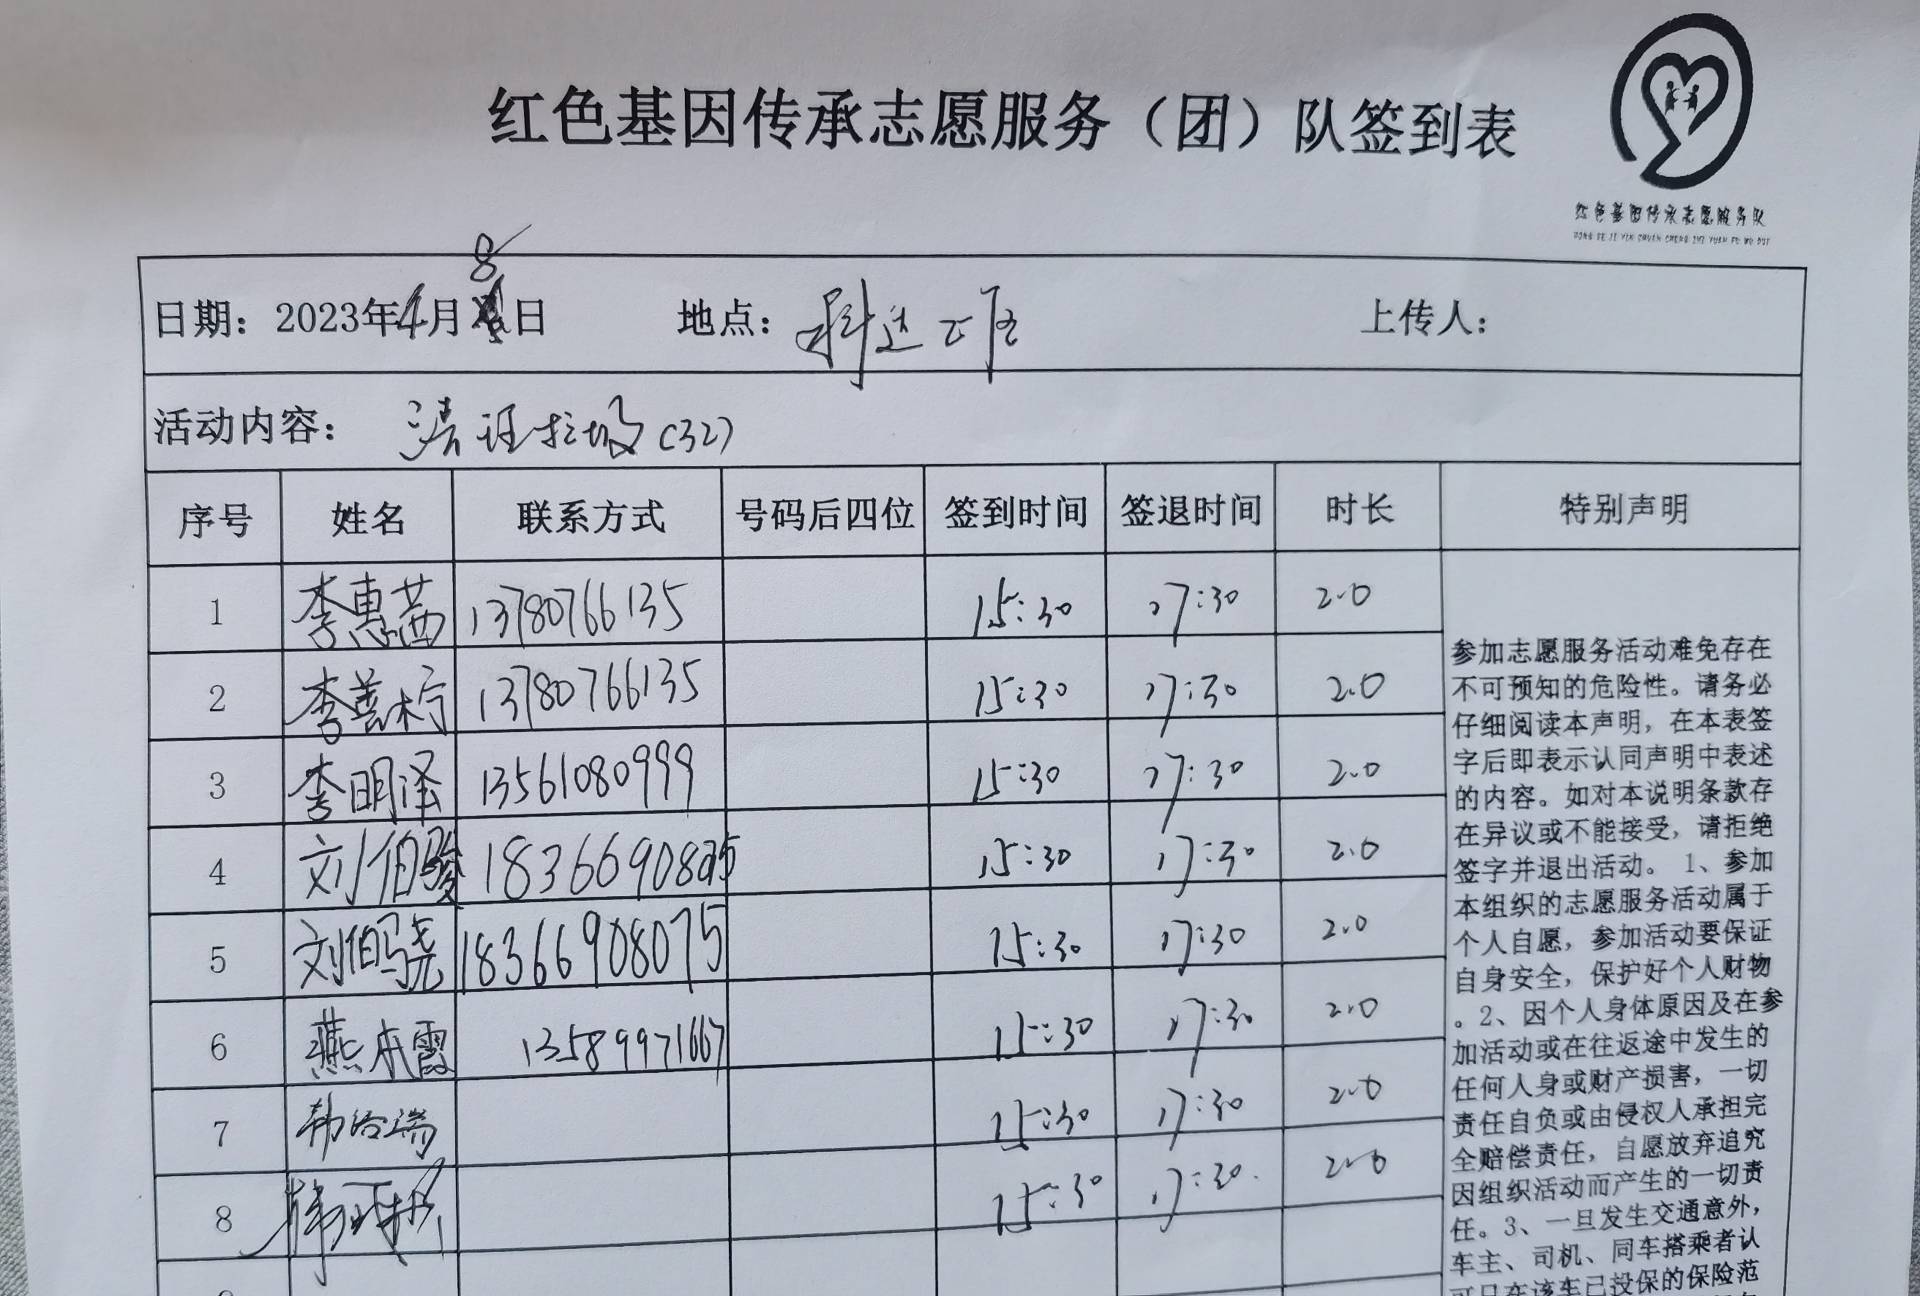 红色基因传承志愿服务（团）队签到表
红色基因传承志愿服务队
HONG SE JI YIN CHUAN CHENG ZHI YUAN FU WU DUI
日期：2023年4月8日 地点： 上传人：
活动内容： (32)
序号 姓名 联系方式 号码后四位 签到时间 签退时间 时长 特别声明
1 李惠茜 13780766135 15:30 17:30 2.0
2 李善柠 13780766135 15:30 17:30 2.0
3 李明泽 13561080999 15:30 17:30 2.0
4 刘伯骏 15:30 17:30 2.0
5 刘伯骁 18366908075 15:30 17:30 2.0
6 燕本霞 13589971667 15:30 17:30 2.0
7 15:30 17:30 2.0
8 15:30 17:30 2.0
参加志愿服务活动难免存在
不可预知的危险性。请务必
仔细阅读本声明，在本表签
字后即表示认同声明中表述
的内容。如对本说明条款存
在异议或不能接受，请拒绝
签字并退出活动。 1、参加
本组织的志愿服务活动属于
个人自愿，参加活动要保证
自身安全，保护好个人财物
。2、因个人身体原因及在参
加活动或在往返途中发生的
任何人身或财产损害，一切
责任自负或由侵权人承担完
全赔偿责任，自愿放弃追究
因组织活动而产生的一切责
任。3、一旦发生交通意外，
车主、司机、同车搭乘者认
可只在该车已投保的保险范